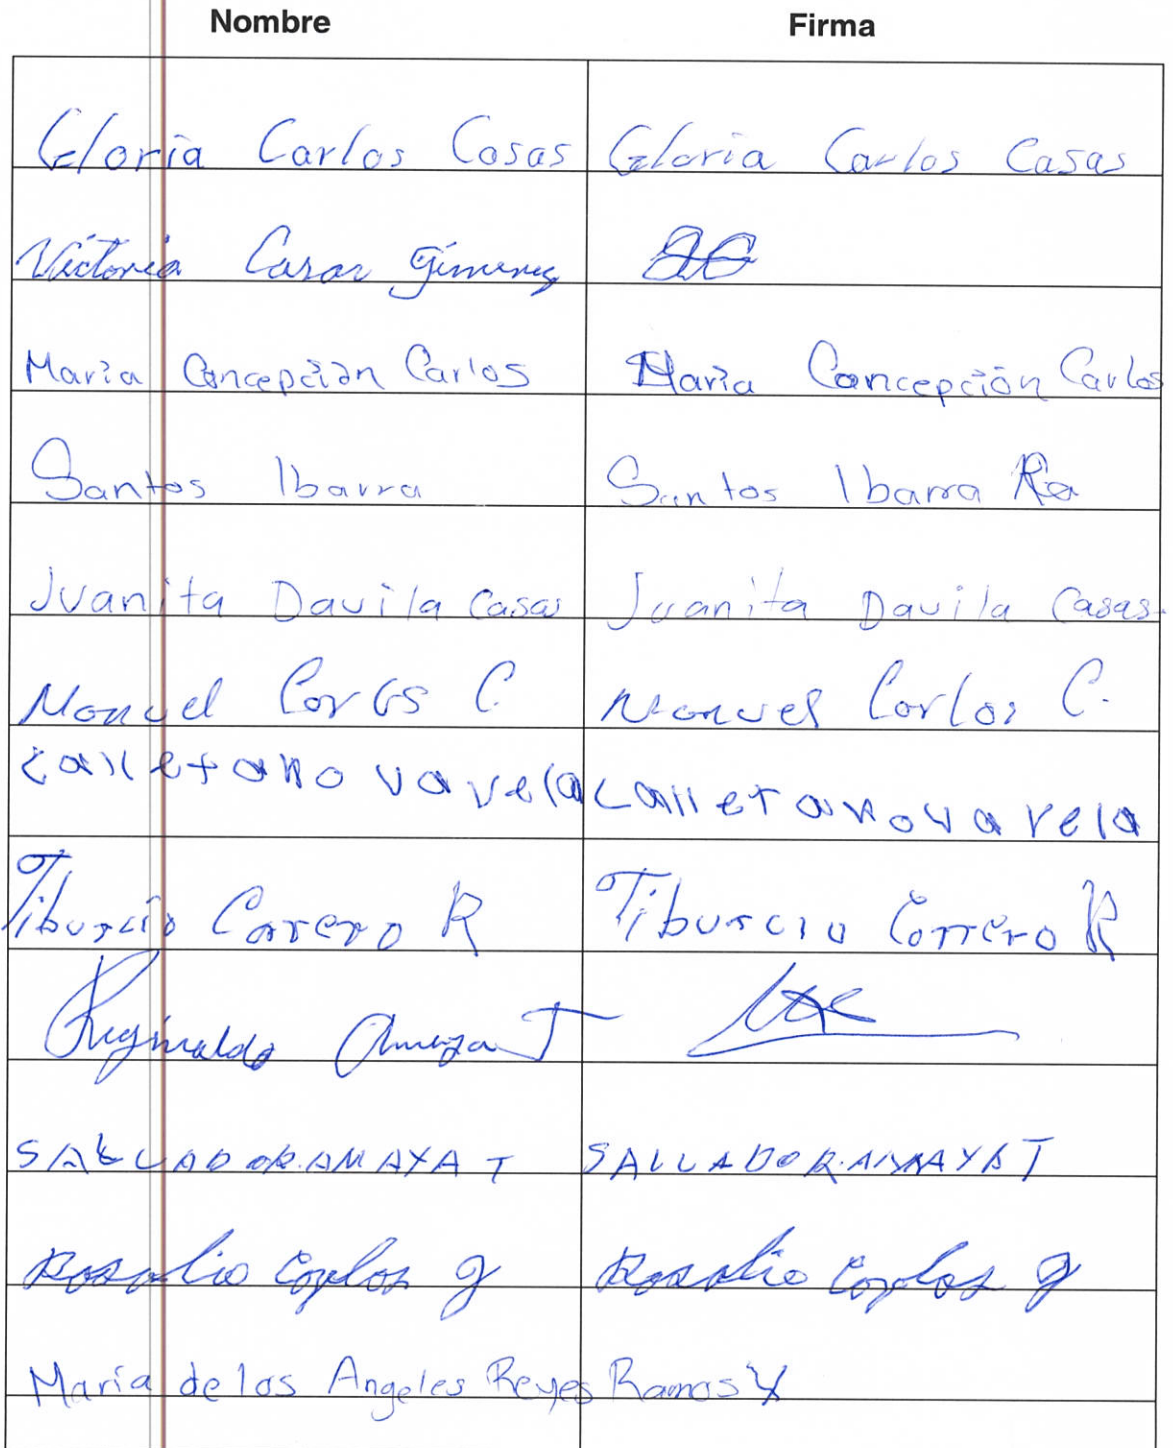 Nombre Firma
Gloria Carlos Casas Gloria Carlos Casas
Victoria Casas Gimenez
Maria Concepción Carlos Maria Concepción Carlos
Santos Ibarra Santos Ibarra Ra
Juanita Davila Casas Juanita Davila Casas
Manuel Carlos C. Manuel Carlos C.
calletano varela calletano varela
Tiburcio Correro R Tiburcio Correro R
Reginaldo Amaya T
SALLADOR.AMAYA T SALLADOR.AMAYA T
Rosalio Carlos g Rosalio Carlos g
Maria de los Angeles Reyes Ramos